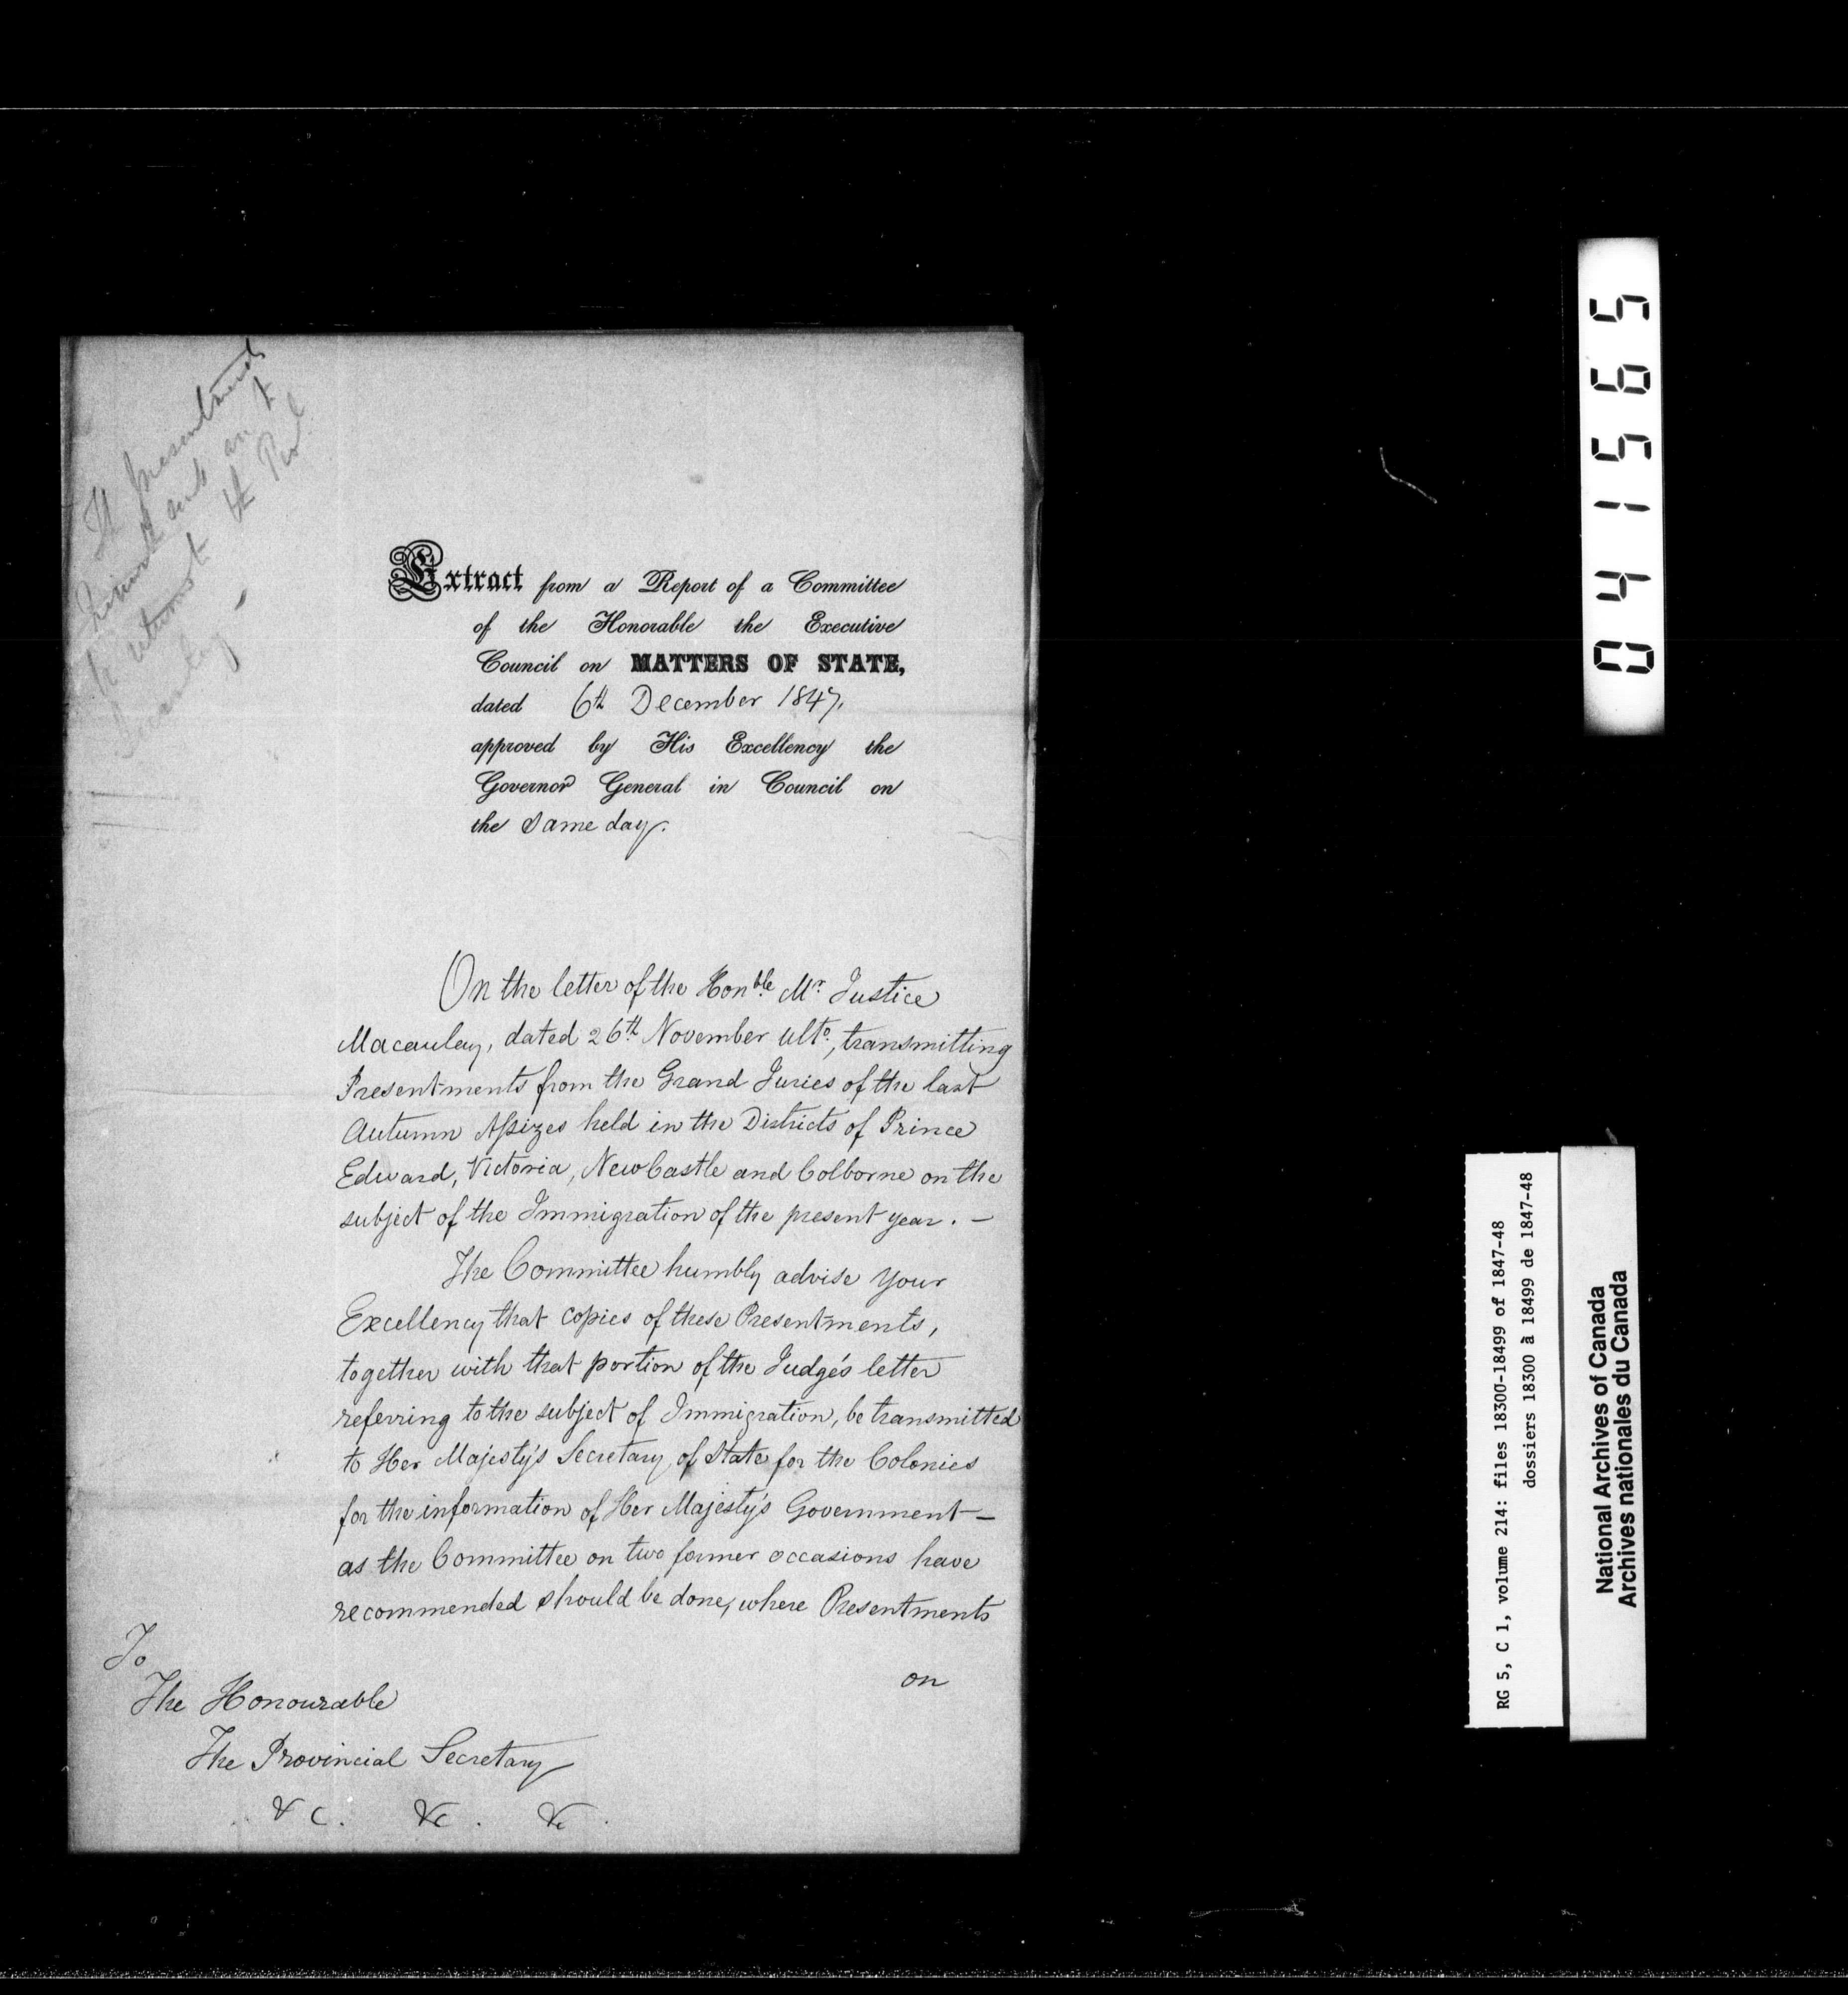 presentments
Extract from a Report of a Committee
of the Honorable the Executive
Council on MATTERS OF STATE,
dated 6th December 1847,
approved by His Excellency the
Governor General in Council on
the same day.
On the letter of the Honble Mr. Justice
Macaulay, dated 26th November ulto, transmitting
Presentments from the Grand Juries of the last
Autumn Assizes held in the Districts of Prince
Edward, Victoria, NewCastle and Colborne on the
subject of the Immigration of the present year. —
The Committee humbly advise Your
Excellency that copies of these Presentments,
together with that portion of the Judge's letter
referring to the subject of Immigration, be transmitted
to Her Majesty's Secretary of State for the Colonies
for the information of Her Majesty's Government —
as the Committee on two former occasions have
recommended should be done, where Presentments
on
To
The Honourable
The Provincial Secretary
&c. &c. &c.
041565
RG 5, C 1, volume 214: files 18300-18499 of 1847-48
dossiers 18300 à 18499 de 1847-48
National Archives of Canada
Archives nationales du Canada